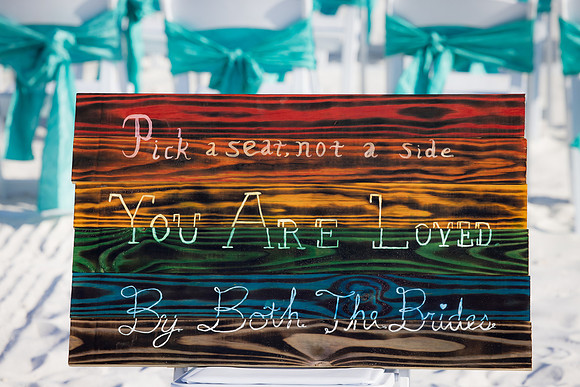 Pick a seat, not a side
You Are Loved
By Both The Brides